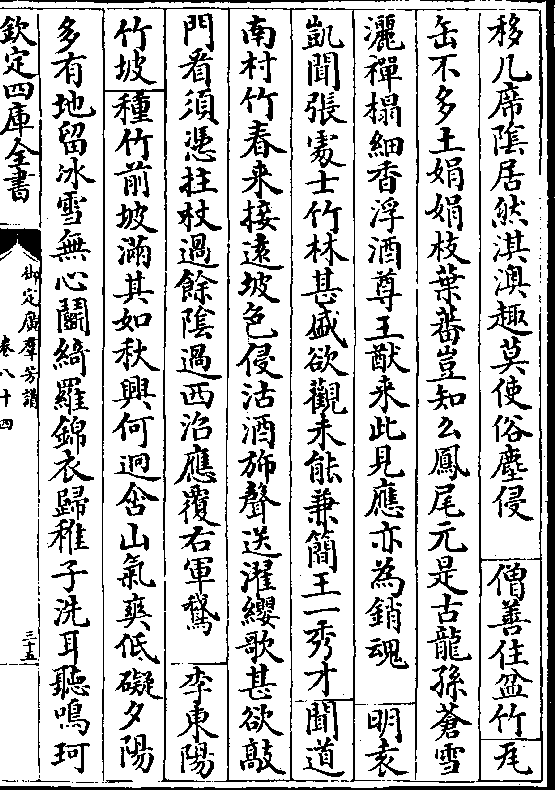 移几席隂居然淇澳趣莫使俗塵侵 僧善住盆竹 瓦
缶不多土娟娟枝葉蕃豈知么鳳尾元是古龍孫蒼雪
灑禪榻細香浮酒尊王猷来此見應亦為銷魂 明袁
凱聞張處士竹林甚盛欲觀未能兼簡王一秀才 聞道
南村竹春来接遠坡色侵沽酒斾聲送濯纓歌甚欲敲
門看須憑拄杖過餘隂過西沼應覆右軍鵞 李東陽
竹坡 種竹前坡滿其如秋興何迥含山氣爽低礙夕陽
多有地留冰雪無心鬭綺羅錦衣歸稚子洗耳聽鳴珂
欽定四庫全書
御定廣羣芳譜
卷八十四
三十五